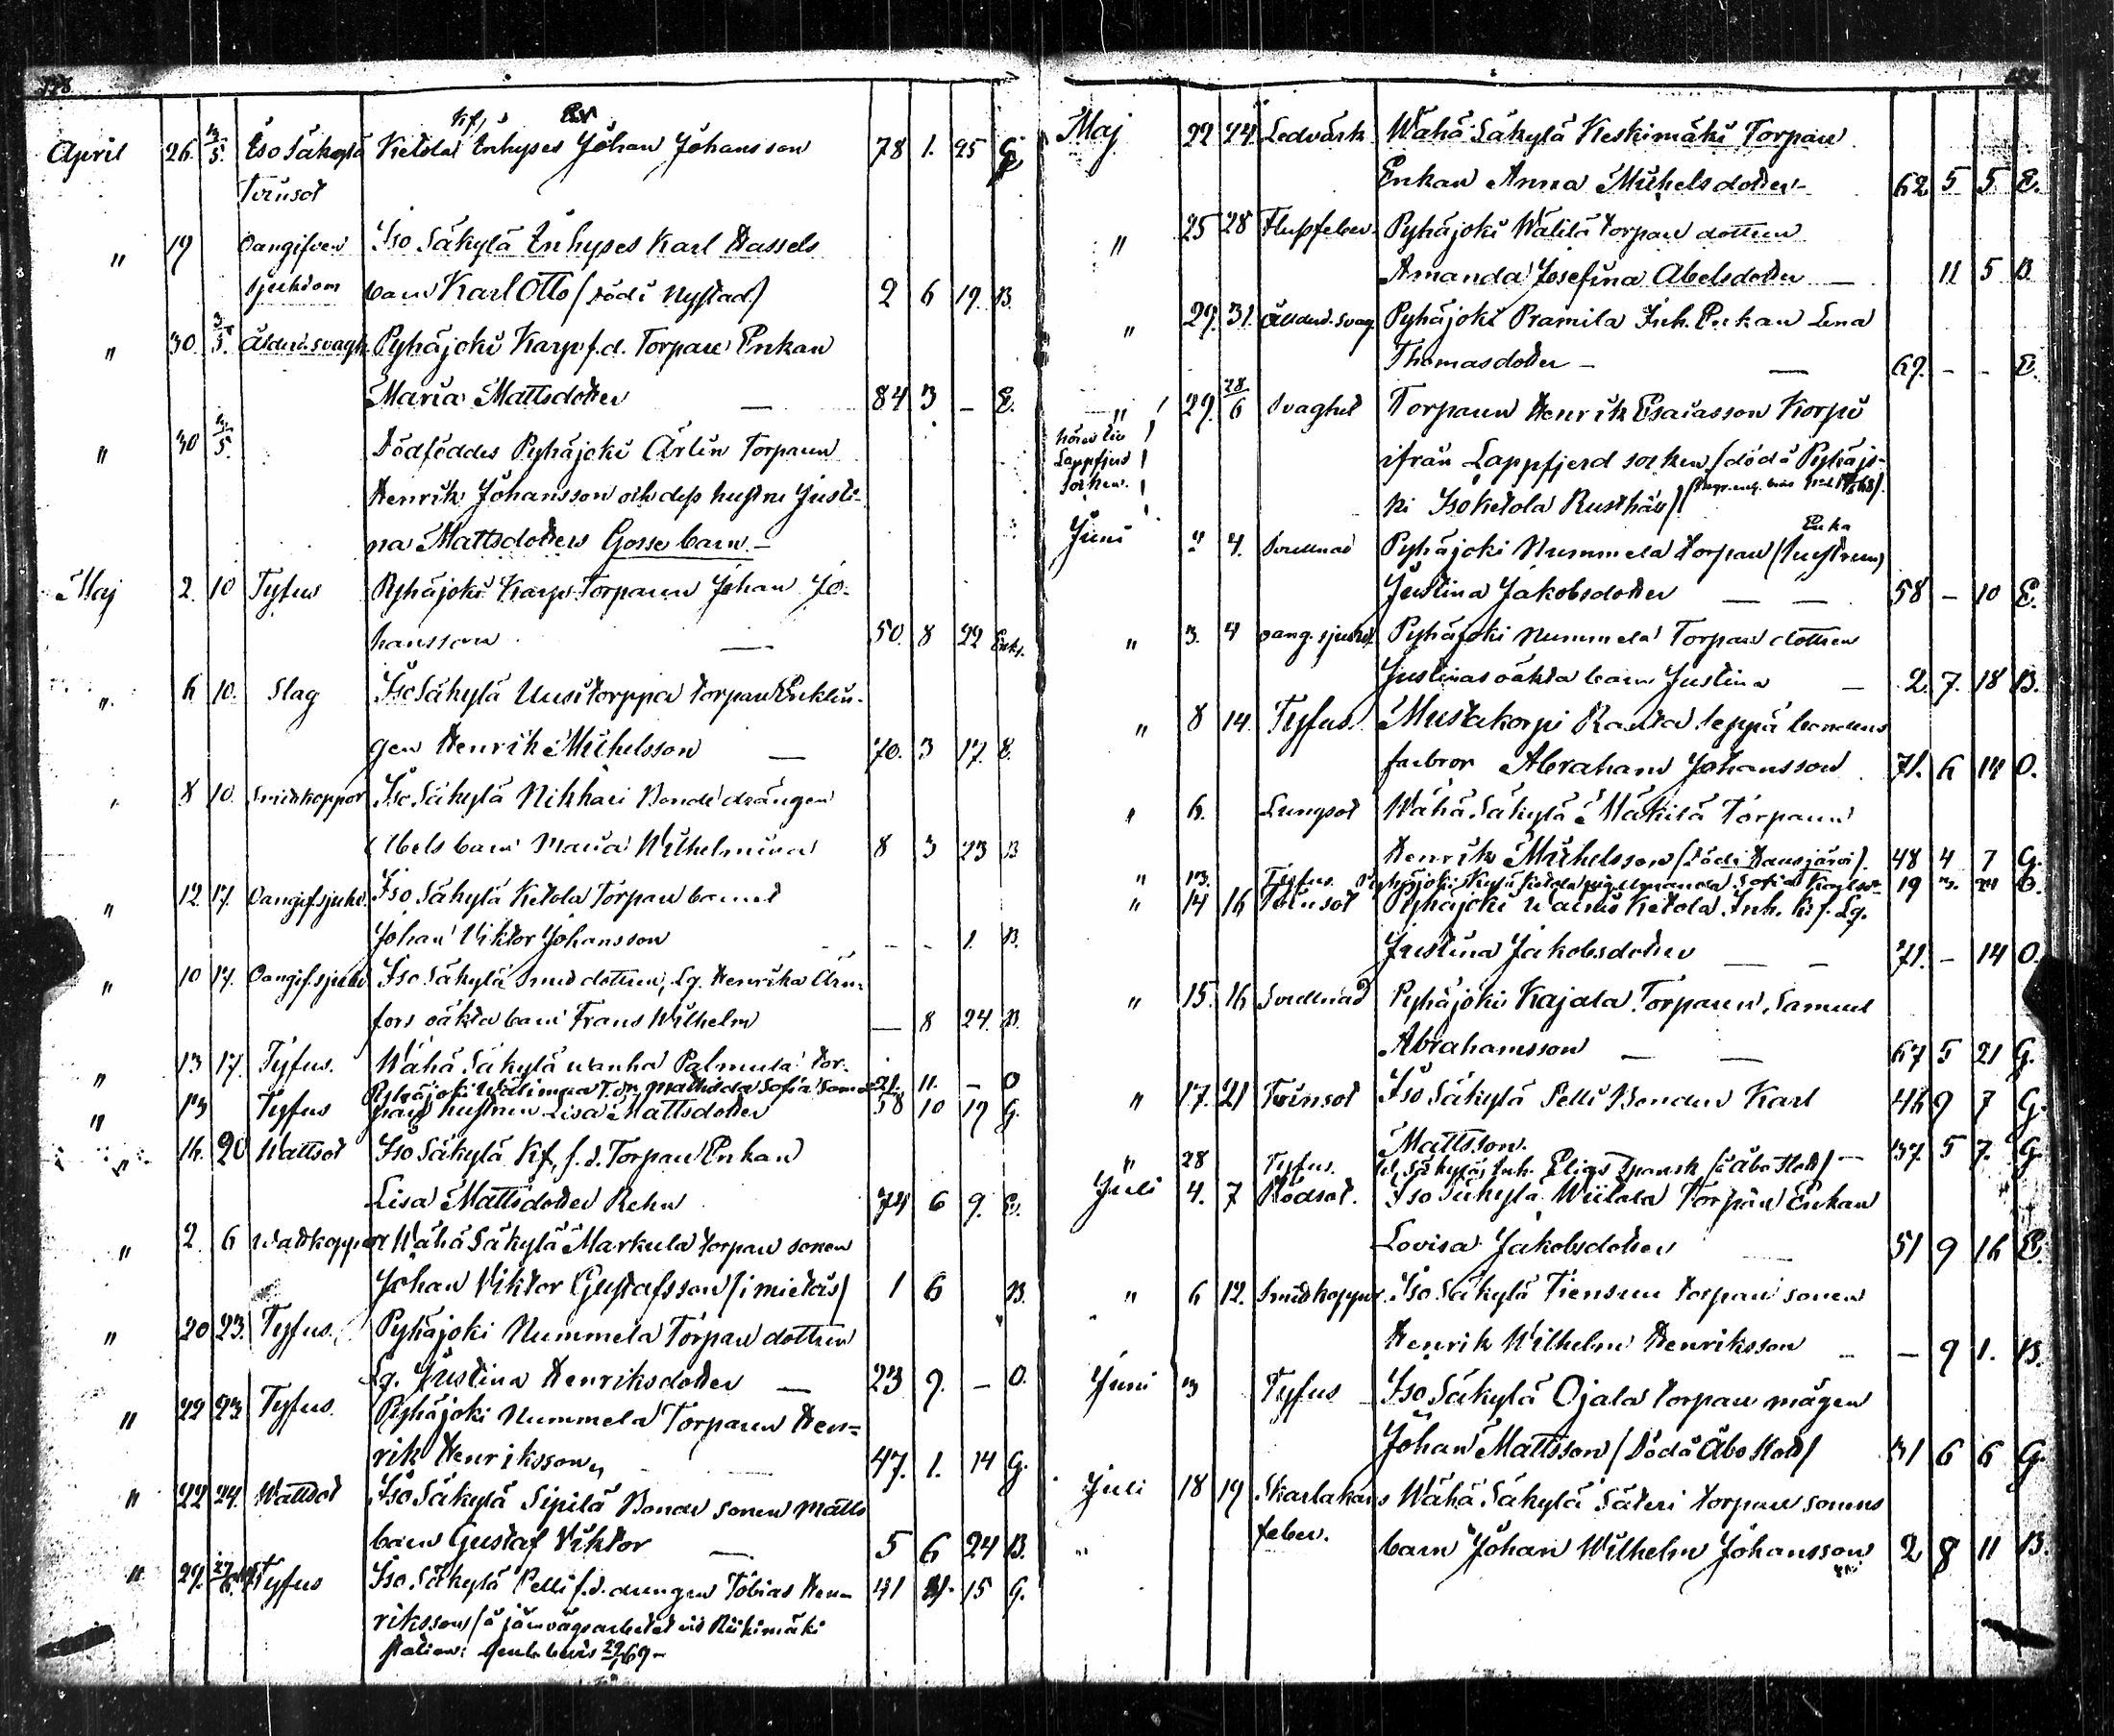 April 26. 3/5. Iso Säkylä Ketola Inhyses Johan Johansson 78 1. 25 G.
Tvinsot
" 19 Oangifven Iso Säkylä Inhyses Karl Hassels
sjukdom barn Karl Otto (död i Nystad) 2 6 19. B.
" 30. 3/5. Ålderd. svagh. Pyhäjoki Karpi f.d. Torpare Enkan
Maria Mattsdotter — 84 3 – E.
" 30 3/5. Dödföddes Pyhäjoki Arlin Torparen
Henrik Johansson och dess hustru Justi-
na Mattsdotters Gosse barn. –
Maj 2. 10 Tyfus Pyhäjoki Karpi Torparen Johan Jo-
hansson — 50. 8 22 Enkl.
" 6 10. Slag Iso Säkylä Uusitorppa torpare Enklin-
gen Henrik Michelsson — 70. 3 17. E.
" 8 10. Smittkoppor Iso Säkylä Nikkari Bonde drängen
Abels barn Maria Wilhelmina 8 3 23 B
" 12. 17. Oangif. sjukd. Iso Säkylä Ketola Torpare barnet
Johan Viktor Johansson – – 1. B.
" 10 17. Oangif. sjukd. Iso Säkylä Smed dottren, Lg. Henrika
fors oäkta barn Frans Wilhelm — 8 24. B.
" 13 17. Tyfus. Wähä Säkylä wanha Palmula Tor-
Pyhäjoki Wälimaa Tor. Mathilda Sofia 21. 11. – O
" 13 Tyfus pare hustrun Lisa Mattsdotter 58 10 19 G.
" 16. 20 Wattsot Iso Säkylä Kf, f.d. Torpare Enkan
Lisa Mattsdotter Rehn 74 6 9. E.
" 2. 6 Wattkoppor Wähä Säkylä Markula torpare sonen
Johan Viktor Gustafsson (i Mietois) 1 6 B.
" 20 23. Tyfus. Pyhäjoki Nummela Torpare dottren
Lg. Justina Henriksdotter — 23 9. – O.
" 22 23 Tyfus. Pyhäjoki Nummela Torparen Hen=
rik Henriksson 47. 1. 14 G.
" 22 24. Wattsot Iso Säkylä Sipilä Bonde sonen Matts
barn Gustaf Viktor — 5 6 24 B.
" 29. Tyfus Iso Säkylä Pelli f.d. drengen Tobias Hen-
riksson (å järnvägsarbetet vid Riihimäki 15 G.
station:
Maj 22 24. Ledvärk Wähä Säkylä Keskimäki Torpare
Enkan Anna Michelsdotter – 62 5 5 E.
" 25 28 Pyhäjoki Wälilä torpare dottren
Amanda Josefina Abelsdotter — 11 5 B.
" 29. 31. Ålderd. svag. Pyhäjoki Pramila Inh. Enkan Lena
Thomasdotter – — 69. – – E.
" 29. 28/6 Svaghet Torparen Henrik Esaiasson Korpi
hörer till
Lappfjerd
Socken. ifrån Lappfjerd socken (död i Pyhäjo-
ki Isoketola Rusthåll)
Juni " 4. Svullnad Pyhäjoki Nummela torpare Enka (hustrun)
Justina Jakobsdotter — — 58 – 10 E.
" 3. 4 oang. sjukd. Pyhäjoki Nummela Torpare dottren
Justinas oäkta barn Justina — 2. 7. 18 B.
" 8 14. Tyfus. Mustakorpi Rantaleppä bondens
farbror Abraham Johansson 71. 6 14 O.
" 6. Lungsot Wähä Säkylä Mäkilä Torparen
Henrik Michelsson (död i Hausjärvi). 48 4 7 G.
" 13. Tyfus. Pyhäjoki Ketola pig. Amanda Sofia 19
" 14 16 Tvinsot Pyhäjoki Ketola Inh. Kf. Lg.
Justina Jakobsdotter — – 71. – 14 O.
" 15. 16 Svullnad Pyhäjoki Kajala Torparen, Samuel
Abrahamsson — — 67 5 21 G.
" 17. 21 Tvinsot Iso Säkylä Pelli Bonden Karl 46 9 7 G.
Mattsson.
" 28 Tyfus. W. Säkylä, Inh. Elias Spansk (i Åbo stad) – 37. 5 7. G.
Juli 4. 7 Rödsot. Iso Säkylä Wiitala Torpare Enkan
Lovisa Jakobsdotter — 51 9 16 E.
" 6 12. Smittkoppor. Iso Säkylä Tiensuu torpare sonen
Henrik Wilhelm Henriksson – – 9 1. B.
Juni 3 Tyfus Iso Säkylä Ojala torpare mågen
Johan Mattsson (Död i Åbo stad) 31 6 6 G.
Juli 18 19 Skarlakans Wähä Säkylä Säteri torpare sonens
" feber. barn Johan Wilhelm Johansson 2 8 11 B.